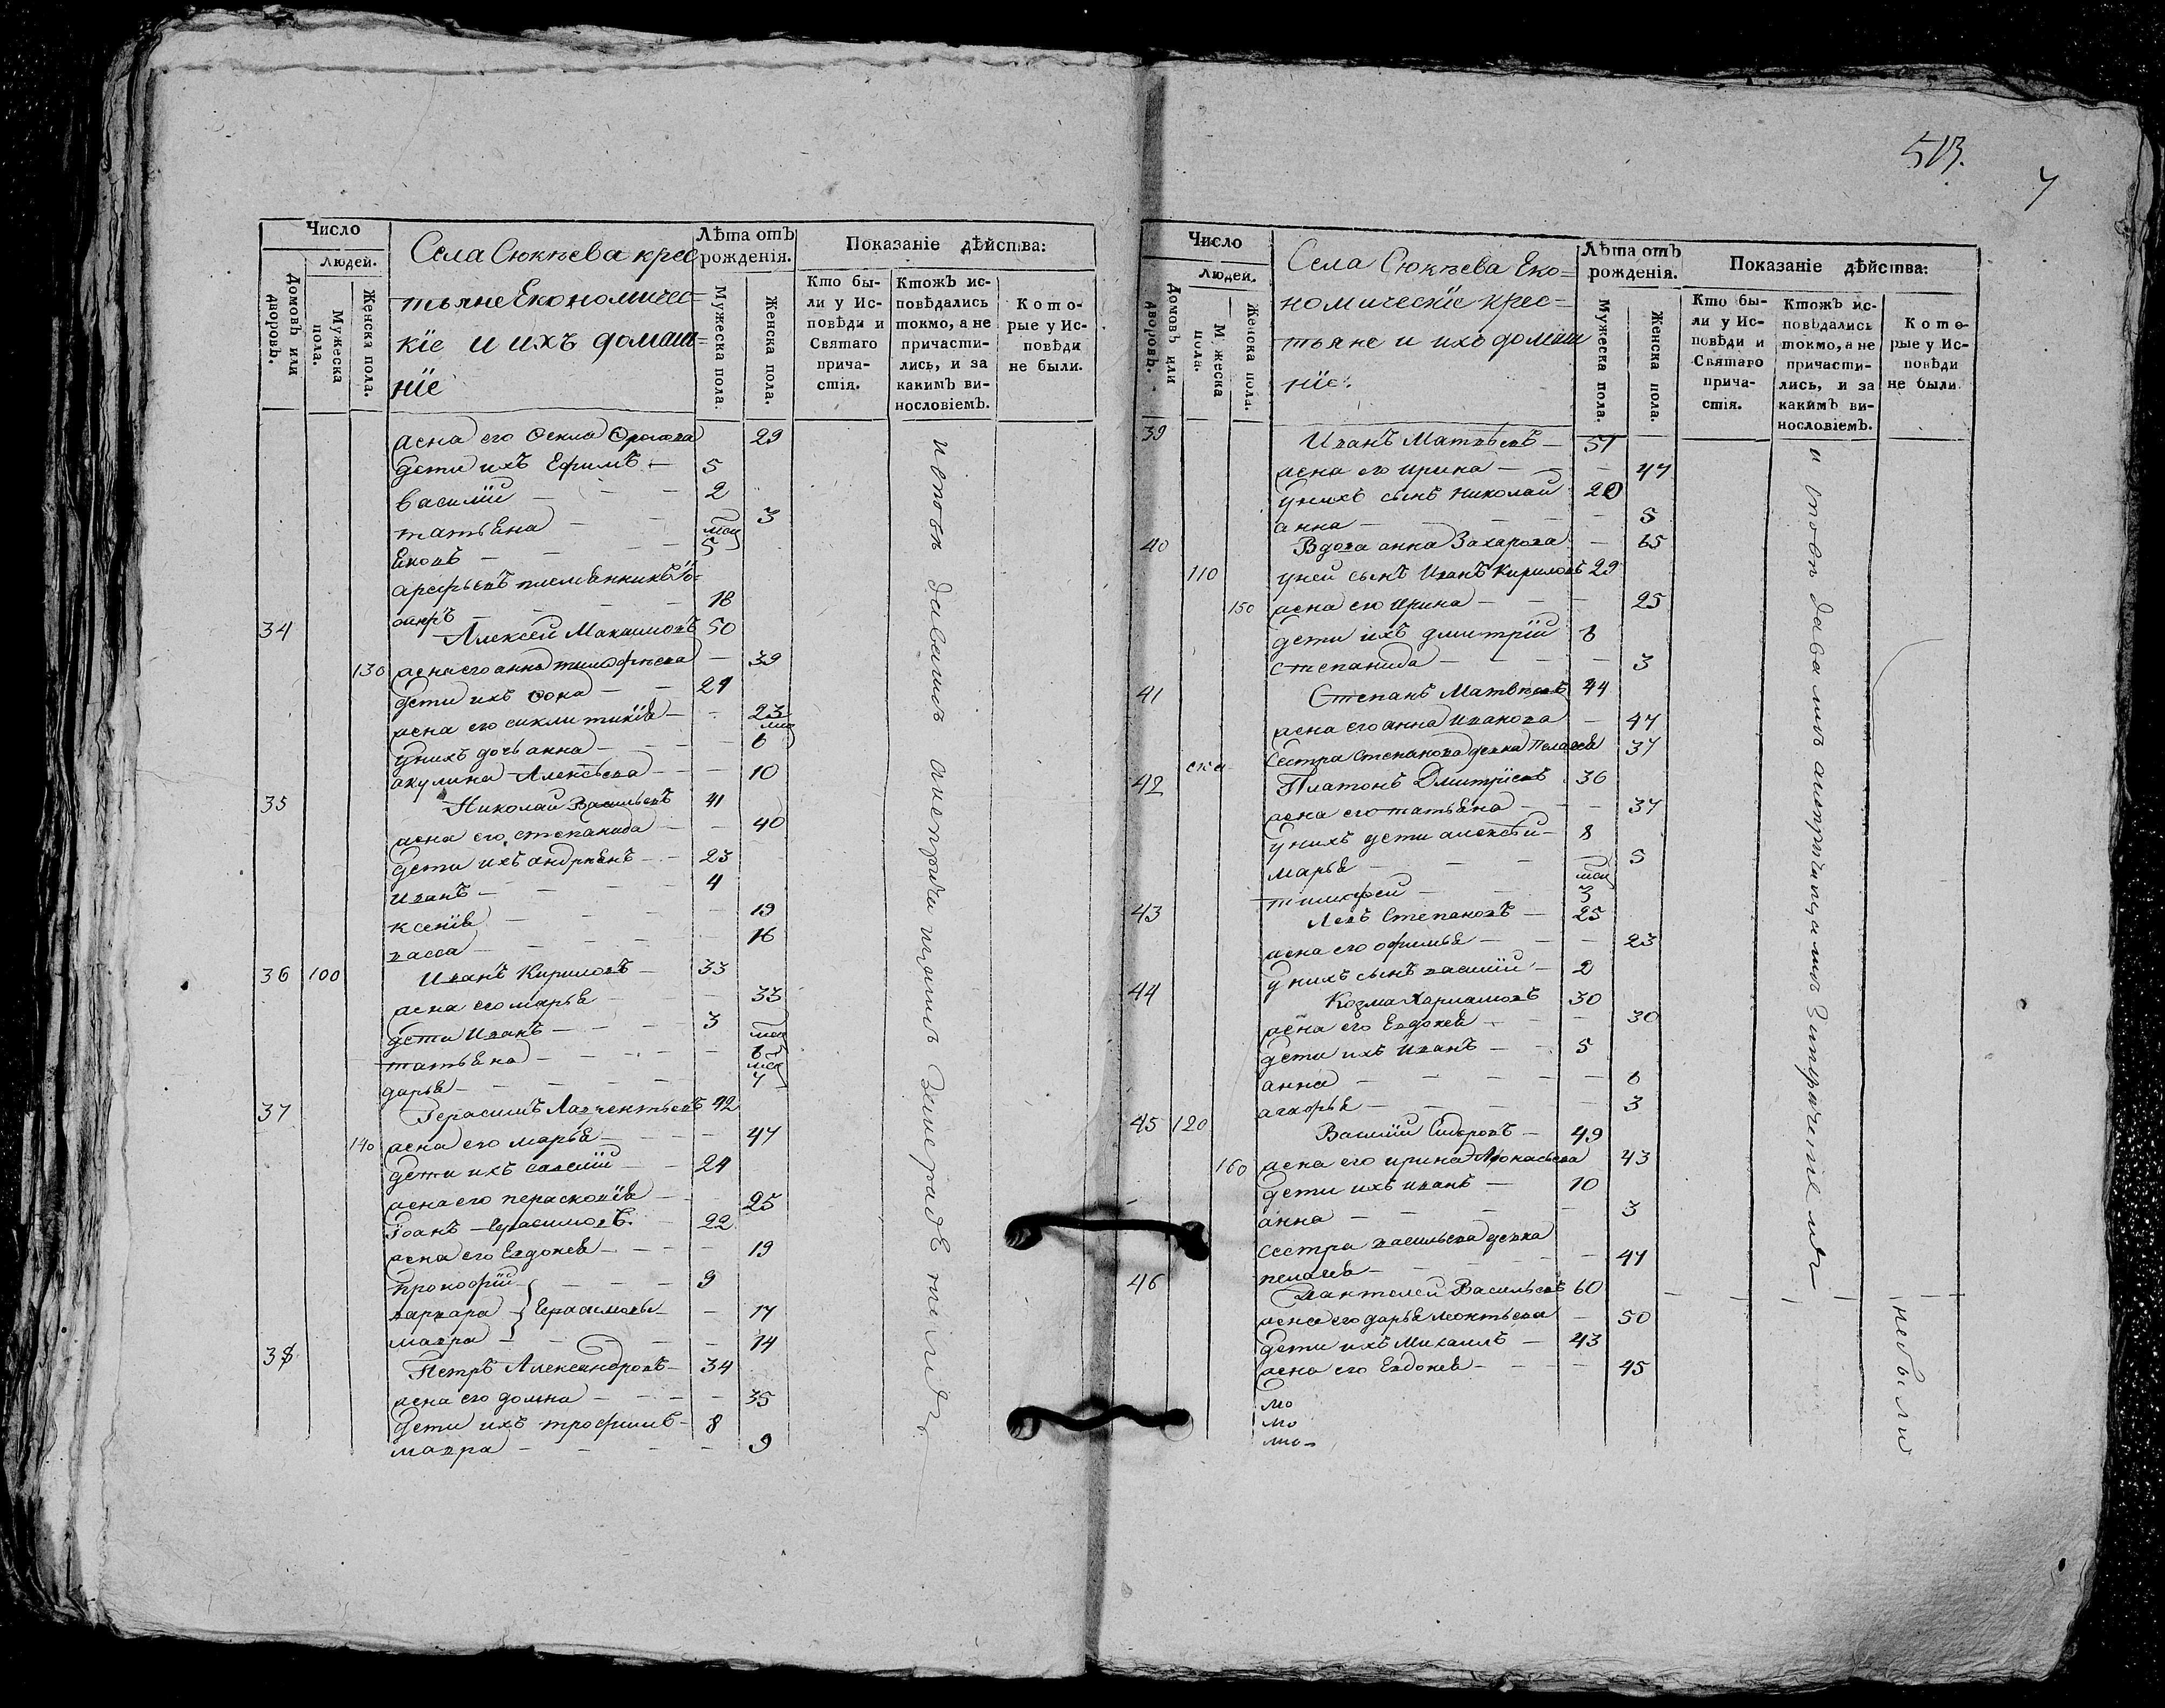 513.
7
Число
Людей.
Домовъ или дворовъ.
Мужеска пола.
Женска пола.
Села Сюкѣева крес
тьяне Економичес=
кїе и ихъ домаш=
нїе
Лѣта отъ рожденія.
Мужеска пола.
Женска пола.
Показаніе дѣйства:
Кто бы-
ли у Ис-
повѣди и
Святаго
прича-
стія.
Ктожъ ис-
повѣдались
токмо, а не
причасти-
лись, и за
какимъ ви-
нословіемъ.
Кото-
рые у Ис-
повѣди
не были.
жена его Фекла Фролова 29
дети ихъ Ефимъ 5
василïй 2
татьяна 3
Яковъ 5
арефьевъ племянникъ
18
34 Алексей Макимовъ 50
130 жена его анна тимофѣева 39
дети ихъ Фока 21
жена его сикли тикïя 23
у нихъ дочь анна 6
акулина Алексѣева 10
35 Николай Васильевъ 41
жена его степанида 40
дети ихъ андреянъ 23
иванъ 4
ксенïя 19
васса 16
36 100 Иванъ Кириловъ 33
жена его марья 33
дети Иванъ 3
татьяна 6
дарья 7
37 Герасимъ Лаврентьевъ 42
140 жена его марья 47
дети ихъ василïй 24
жена его перасковïя 25
Іоанъ Герасимовъ 22
жена его Евдокея 19
прокофïй 9
варвара Герасимовы 17
мавра 14
38 Петръ Александровъ 34
жена его домна 35
дети ихъ трофимъ 8
мавра 9
Число
Людей.
Домовъ или дворовъ.
Мужеска пола.
Женска пола.
Села Сюкѣева Еко=
номическïе крес=
тьяне и ихъ домаш
нïе.
Лѣта отъ рожденія.
Мужеска пола.
Женска пола.
Показаніе дѣйства:
Кто бы-
ли у Ис-
повѣди и
Святаго
прича-
стія.
Ктожъ ис-
повѣдались
токмо, а не
причасти-
лись, и за
какимъ ви-
нословіемъ.
Кото-
рые у Ис-
повѣди
не были.
39 Иванъ Матвѣевъ 51
жена его ирина 47
у нихъ сынъ николай 20
анна 5
40 Вдова анна Захарова 65
110 у ней сынъ Иванъ Кириловъ 29
150 жена его ирина 25
дети ихъ дмитрïй 6
степанида 3
41 Степанъ Матвѣевъ 44
жена его анна иванова 47
сестра степанова девка Пелагея 37
42 Платонъ Дмитрïевъ 36
жена его татьяна 37
у нихъ дети алексѣй 8
марья 5
тимофей 3
43 Левъ Степановъ 25
жена его офимья 23
у нихъ сынъ василïй 2
44 Козма Харламовъ 30
жена его Евдокея 30
дети ихъ иванъ 5
анна 6
агафья 3
45 120 Василïй Сидоровъ 49
160 жена его ирина Афонасьева 43
дети ихъ иванъ 10
анна 3
сестра васильева девка
пелагея 41
46 Пантелей Васильевъ 60
жена его дарья леонтьева 50
дети ихъ Михаилъ 43
жена его Евдокея 45
не были